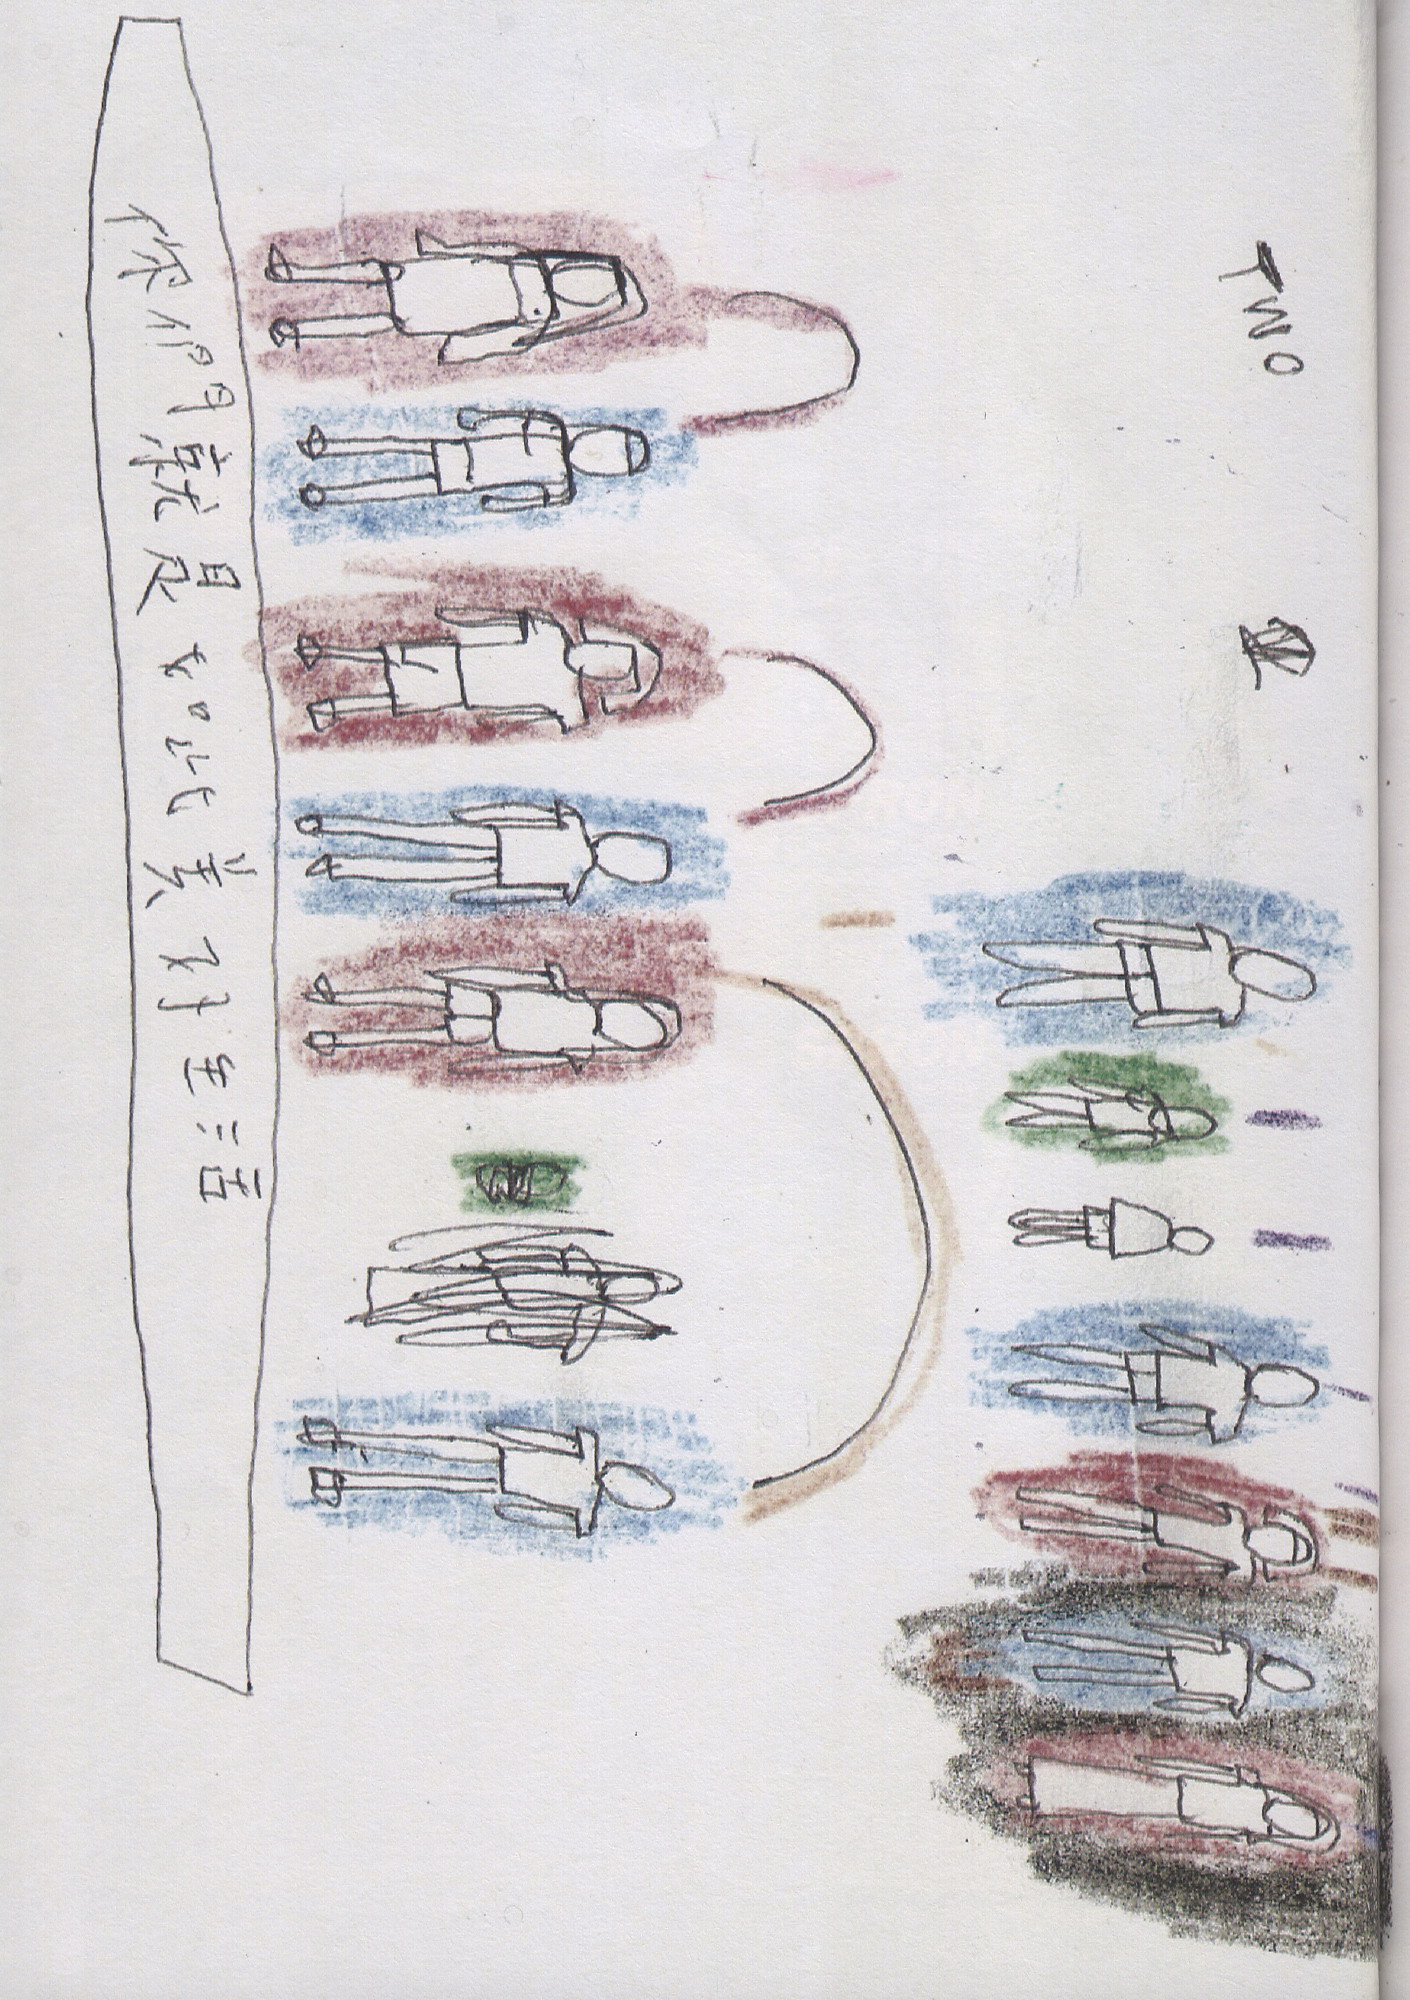 TWO
你们就是如此美好生活